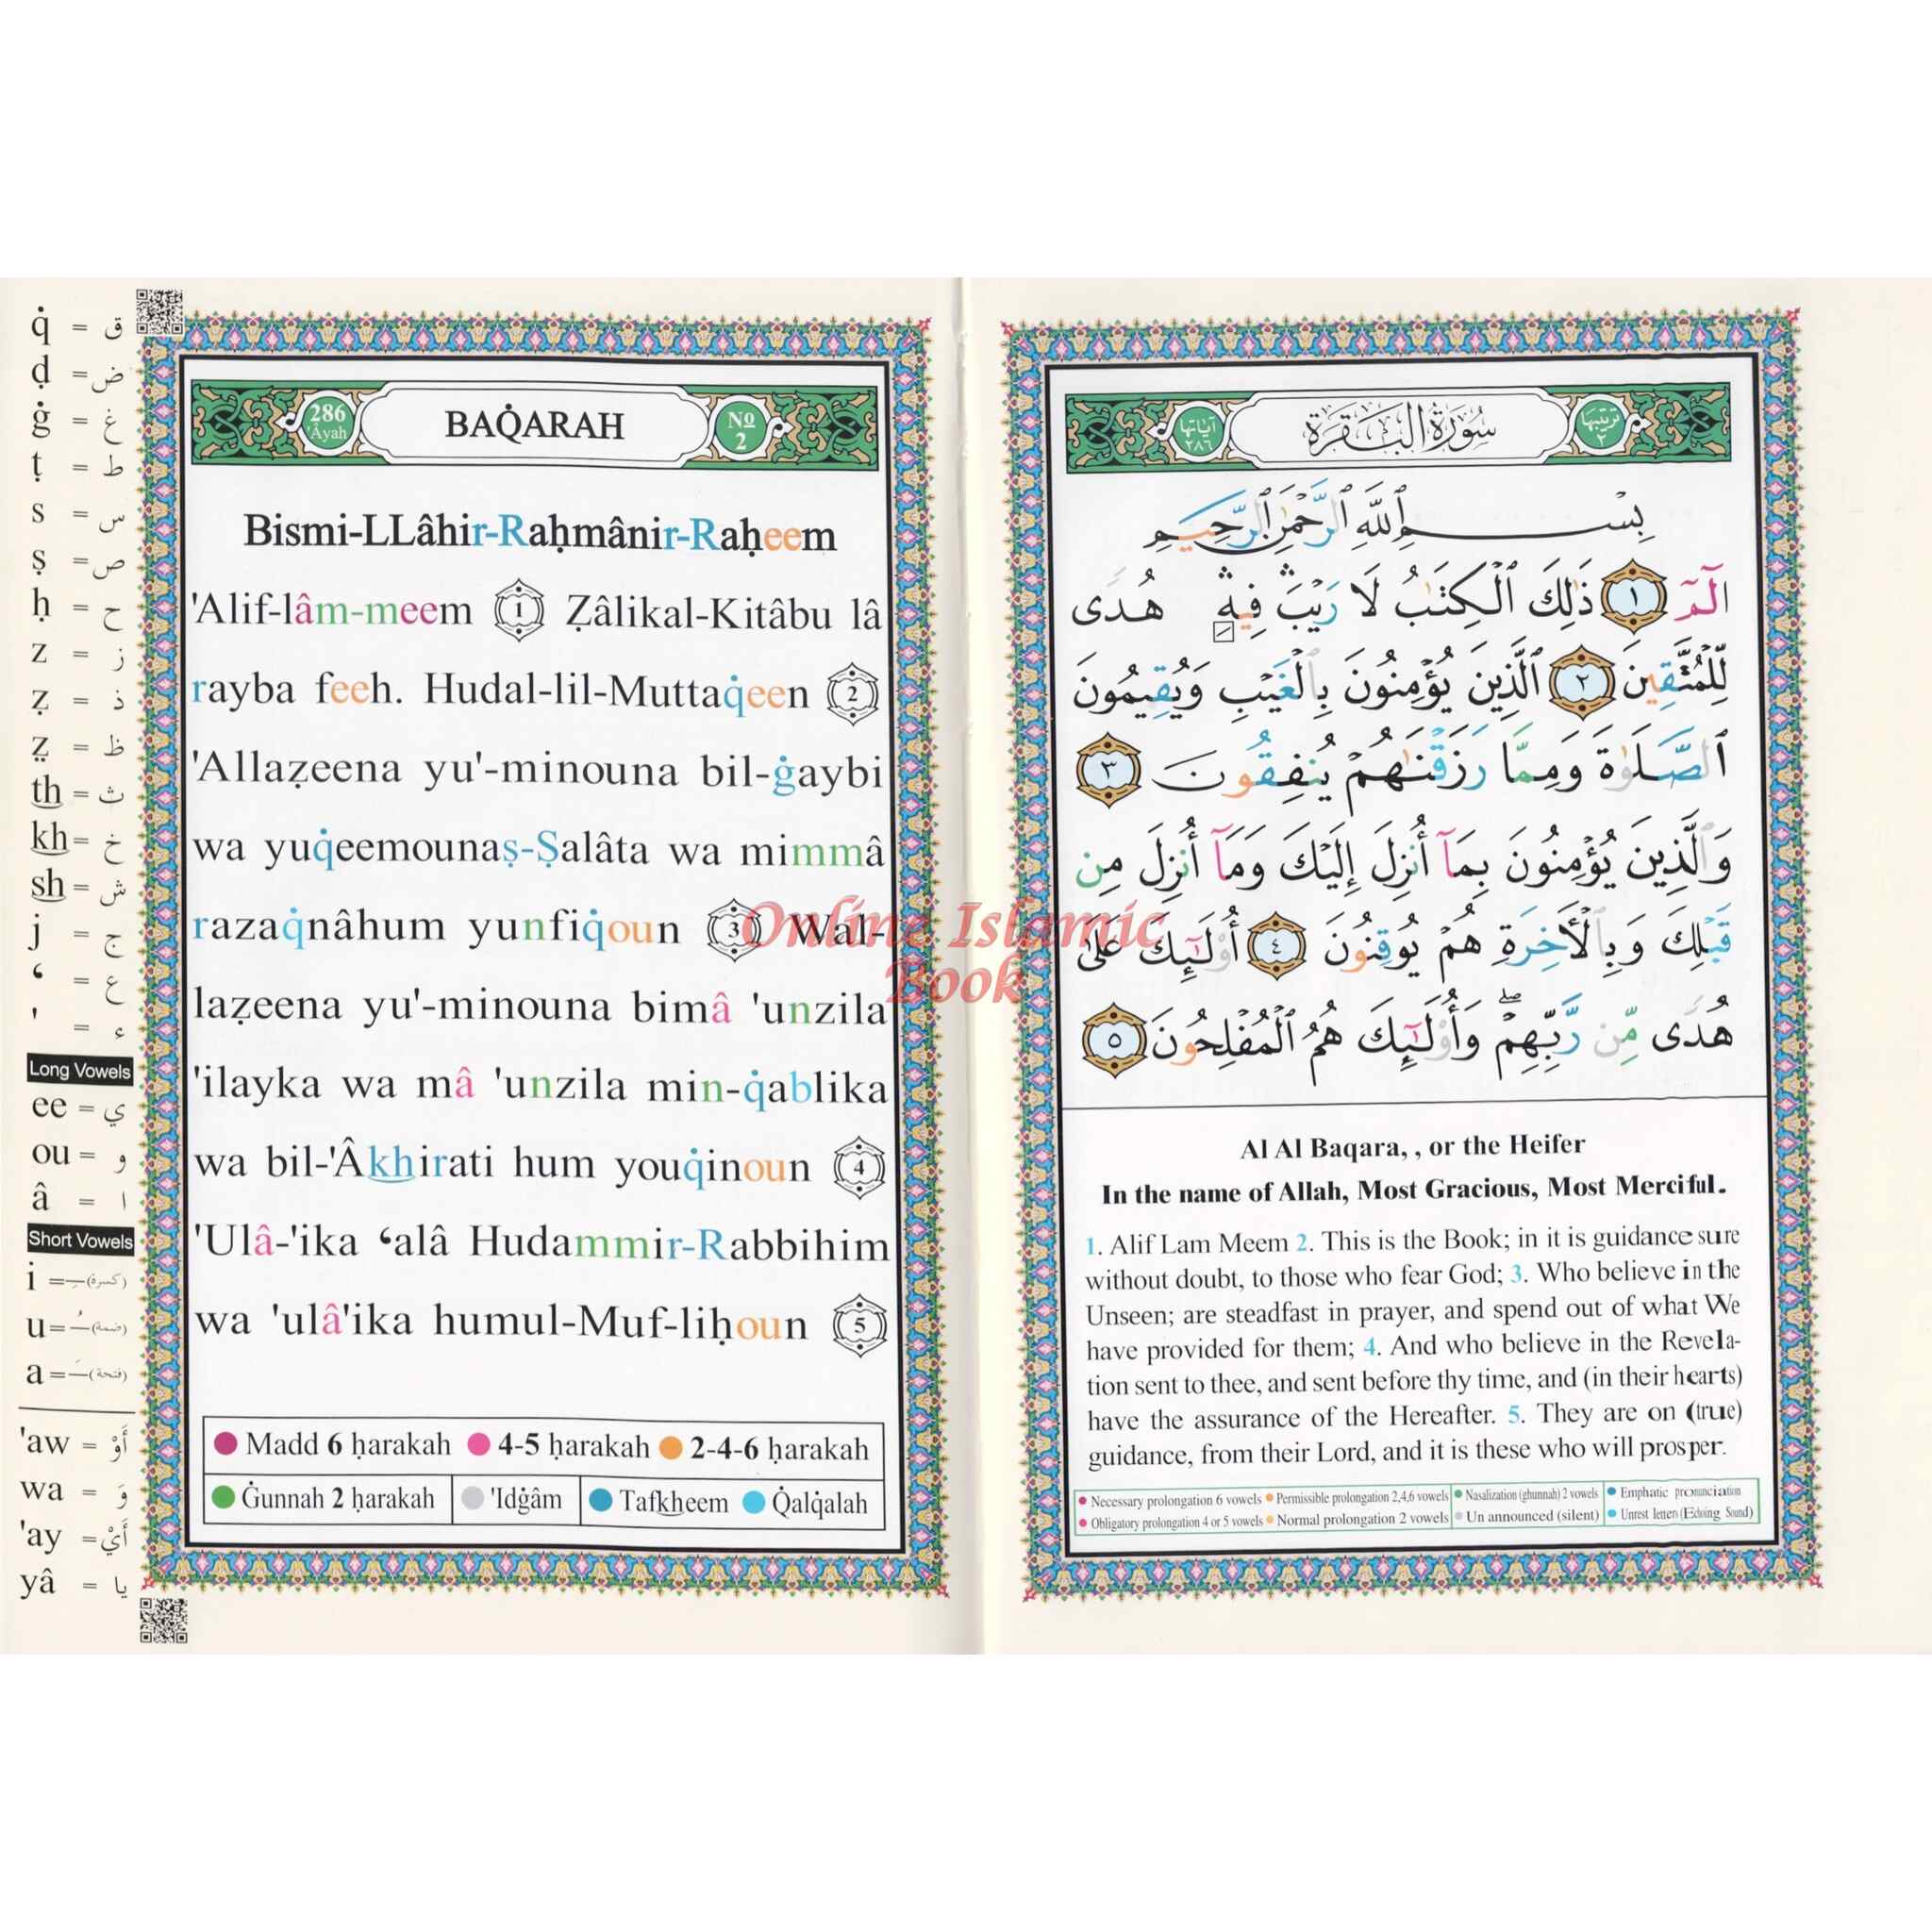 q̇ = ق
ḍ = ض
ġ = غ
ṭ = ط
s = س
ṣ = ص
ḥ = ح
z = ز
ẓ = ذ
ẓ = ظ
th = ث
kh = خ
sh = ش
j = ج
‘ = ع
' = ء
Long Vowels
ee = ي
ou = و
â = ا
Short Vowels
i = ـِ (كسرة)
u = ـُ (ضمة)
a = ـَ (فتحة)
'aw = أَوْ
wa = وَ
'ay = أَيْ
yâ = يا
286 'Âyah
BAQ̇ARAH
№ 2
Bismi-LLâhir-Raḥmânir-Raḥeem
'Alif-lâm-meem 1 Ẓâlikal-Kitâbu lâ
rayba feeh. Hudal-lil-Muttaq̇een 2
'Allaẓeena yu'-minouna bil-ġaybi
wa yuq̇eemounaṣ-Ṣalâta wa mimmâ
razaq̇nâhum yunfiq̇oun 3 Wal-
laẓeena yu'-minouna bimâ 'unzila
'ilayka wa mâ 'unzila min-q̇ablika
wa bil-'Âkhirati hum youq̇inoun 4
'Ulâ-'ika ‘alâ Hudammir-Rabbihim
wa 'ulâ'ika humul-Muf-liḥoun 5
Madd 6 ḥarakah 4-5 ḥarakah 2-4-6 ḥarakah
Ġunnah 2 ḥarakah 'Idġâm Tafkheem Q̇alq̇alah
Online Islamic
Book
ترتيبها ٢
سُورَةُ البَقَرَة
آياتها ٢٨٦
بِسْمِ ٱللَّهِ ٱلرَّحْمَٰنِ ٱلرَّحِيمِ
الٓمٓ ١ ذَٰلِكَ ٱلْكِتَٰبُ لَا رَيْبَ ۛ فِيهِ ۛ هُدًى
لِّلْمُتَّقِينَ ٢ ٱلَّذِينَ يُؤْمِنُونَ بِٱلْغَيْبِ وَيُقِيمُونَ
ٱلصَّلَوٰةَ وَمِمَّا رَزَقْنَٰهُمْ يُنفِقُونَ ٣
وَٱلَّذِينَ يُؤْمِنُونَ بِمَآ أُنزِلَ إِلَيْكَ وَمَآ أُنزِلَ مِن
قَبْلِكَ وَبِٱلْأَخِرَةِ هُمْ يُوقِنُونَ ٤ أُو۟لَٰٓئِكَ عَلَىٰ
هُدًى مِّن رَّبِّهِمْ ۖ وَأُو۟لَٰٓئِكَ هُمُ ٱلْمُفْلِحُونَ ٥
Al Al Baqara, , or the Heifer
In the name of Allah, Most Gracious, Most Merciful.
1. Alif Lam Meem 2. This is the Book; in it is guidance sure
without doubt, to those who fear God; 3. Who believe in the
Unseen; are steadfast in prayer, and spend out of what We
have provided for them; 4. And who believe in the Revela-
tion sent to thee, and sent before thy time, and (in their hearts)
have the assurance of the Hereafter. 5. They are on (true)
guidance, from their Lord, and it is these who will prosper.
Necessary prolongation 6 vowels Permissible prolongation 2,4,6 vowels Nasalization (ghunnah) 2 vowels Emphatic pronunciation
Obligatory prolongation 4 or 5 vowels Normal prolongation 2 vowels Un announced (silent) Unrest letters (Echoing Sound)